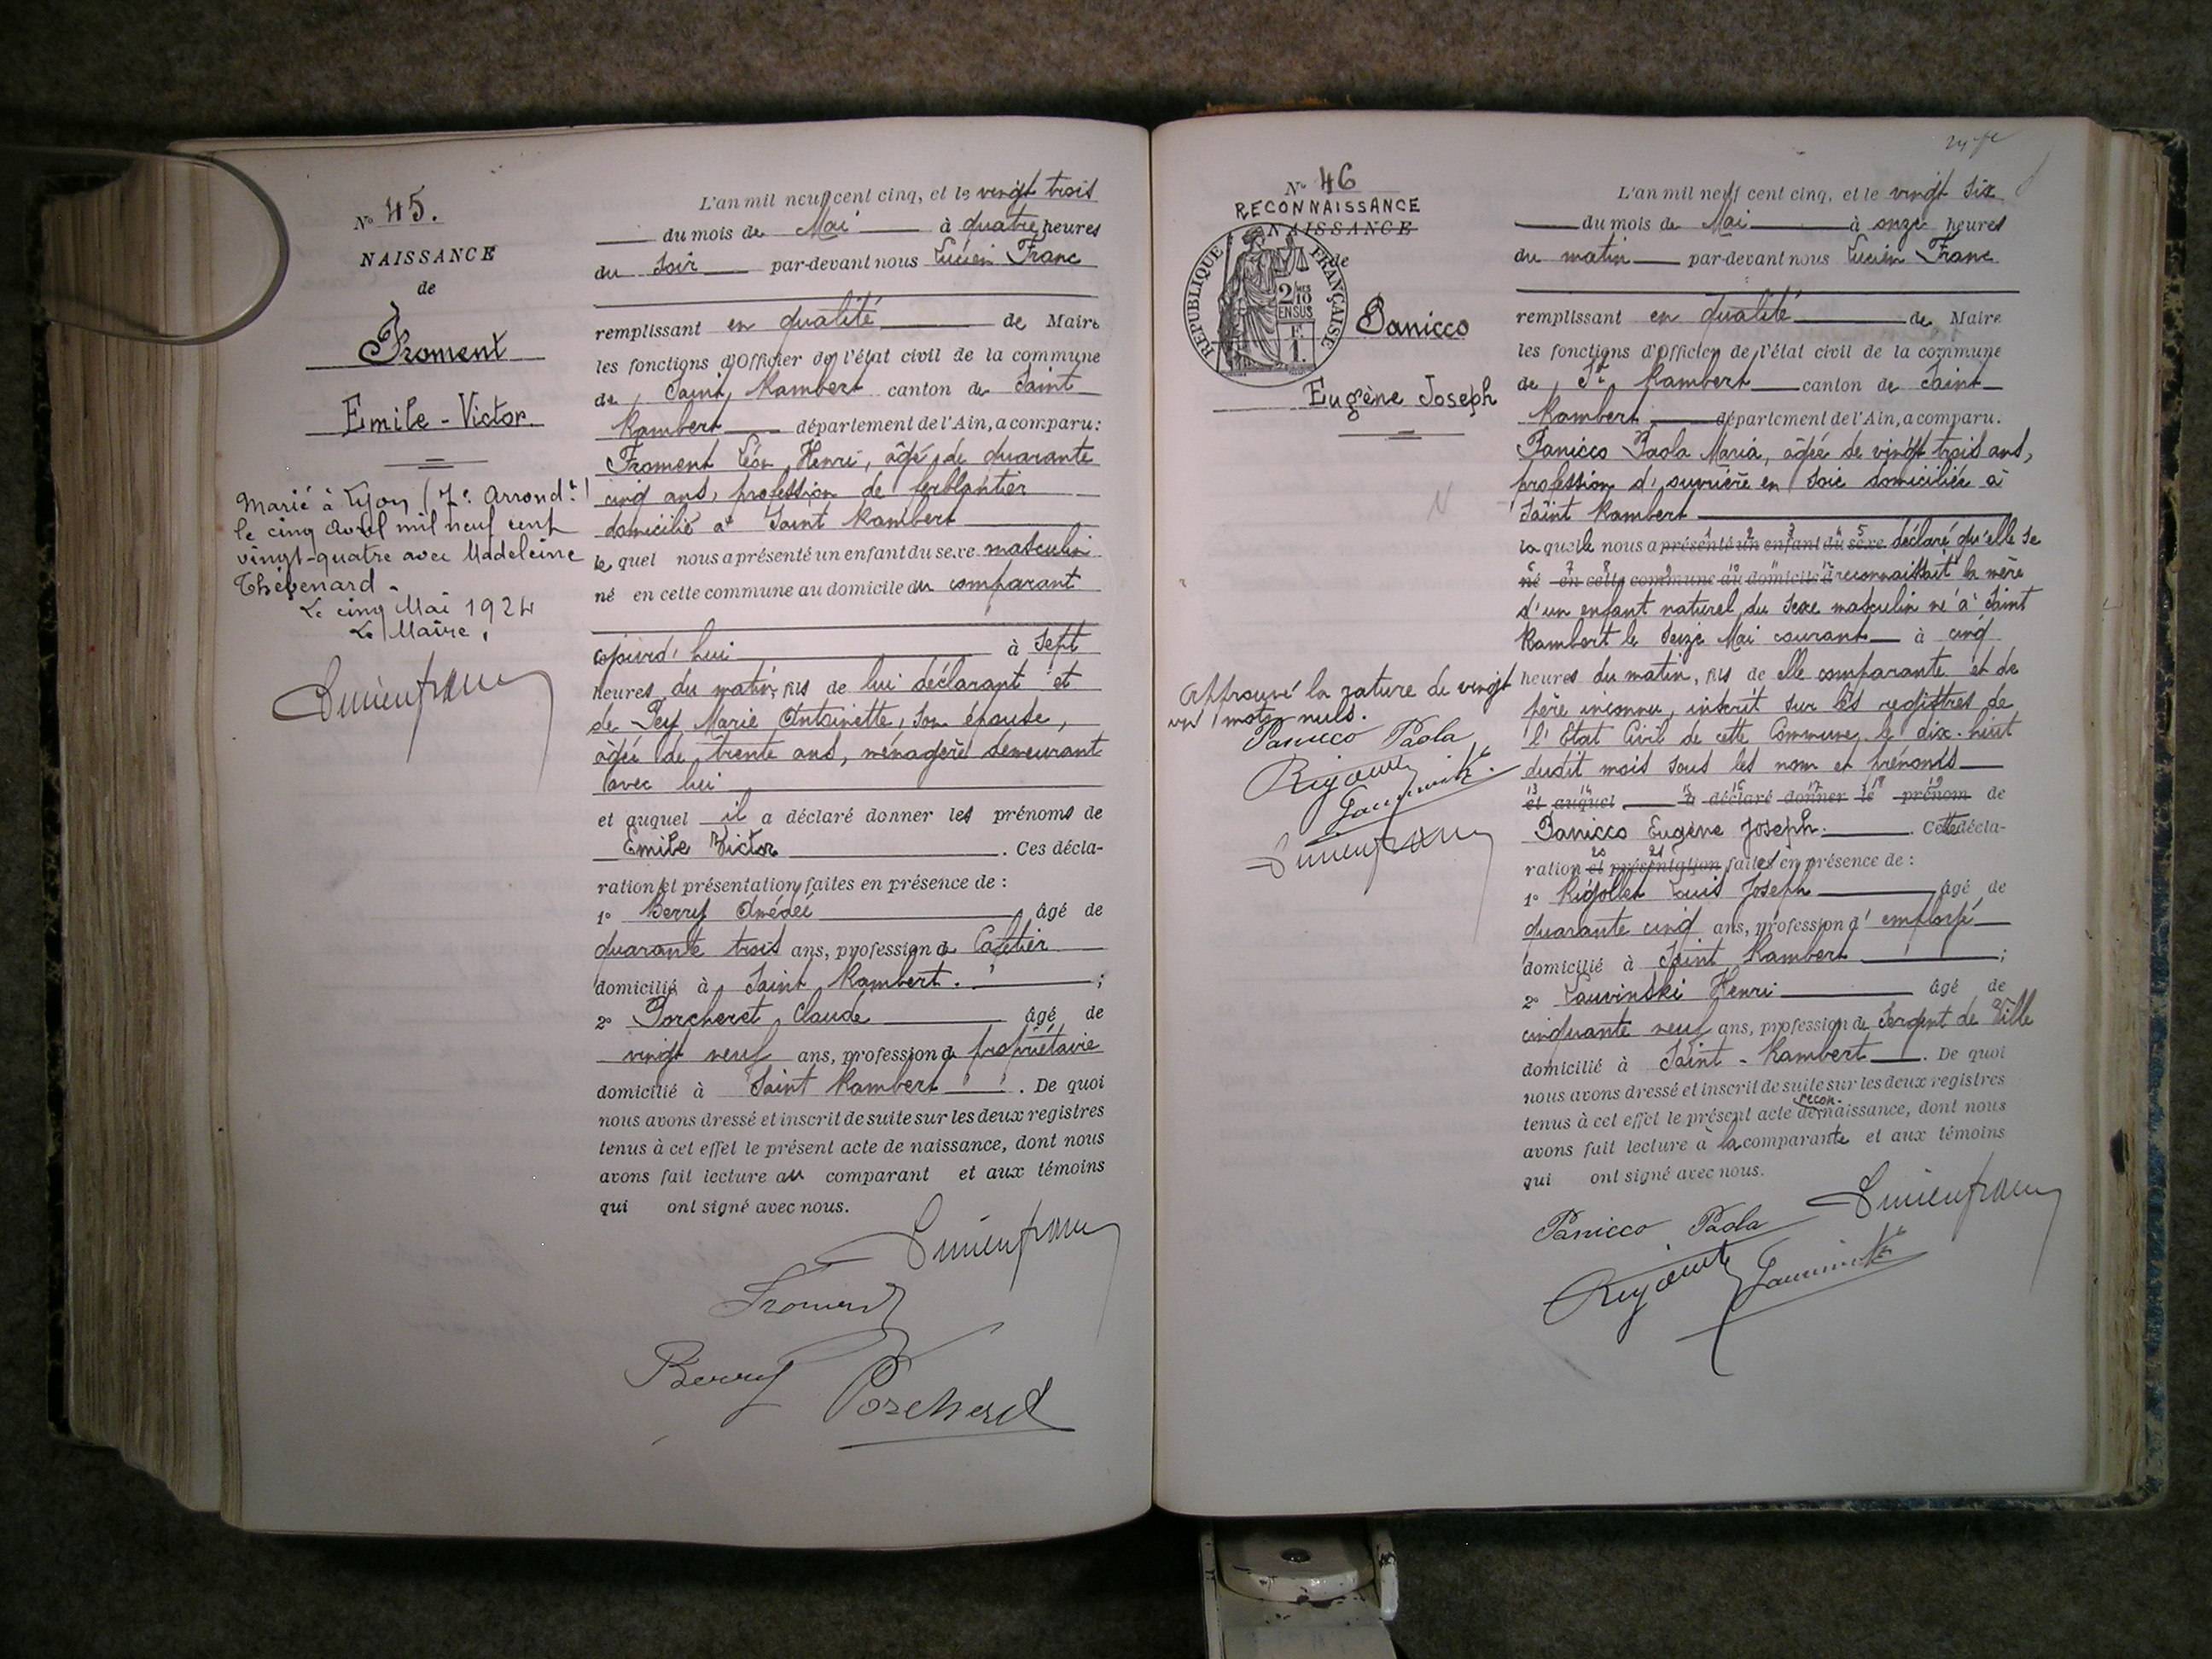 N° 45.
NAISSANCE
de
Froment
Emile-Victor.
Marié à Lyon (7e Arrondt)
le cinq Avril mil neuf cent
vingt-quatre avec Madeleine
Thévenard.
Le cinq Mai 1924
Le Maire,
Lucien Franc
L'an mil neuf cent cinq, et le vingt trois
du mois de Mai à quatre heures
du soir par-devant nous Lucien Franc
remplissant en qualité de Maire
les fonctions d'Officier de l'état civil de la commune
de Saint Rambert canton de Saint
Rambert département de l'Ain, a comparu:
Froment Léon Henri, âgé de quarante
cinq ans, profession de ferblantier
domicilié à Saint Rambert
le quel nous a présenté un enfant du sexe masculin
né en cette commune au domicile du comparant
aujourd'hui à sept
heures du matin, fils de lui déclarant et
de Pey Marie Antoinette, son épouse,
âgée de trente ans, ménagère demeurant
avec lui
et auquel il a déclaré donner les prénoms de
Emile Victor. Ces décla-
ration et présentation faites en présence de :
1° Berry Amédée âgé de
quarante trois ans, profession de Cafetier
domicilié à Saint Rambert. ;
2° Porcheret Claude âgé de
vingt neuf ans, profession de propriétaire
domicilié à Saint Rambert. De quoi
nous avons dressé et inscrit de suite sur les deux registres
tenus à cet effet le présent acte de naissance, dont nous
avons fait lecture au comparant et aux témoins
qui ont signé avec nous.
Lucien Franc
Froment
Berry Porcheret
N° 46
RECONNAISSANCE
NAISSANCE
de
REPUBLIQUE FRANÇAISE
2/10 EN SUS
Panicco
Eugène Joseph
Approuvé la rature de vingt
un mots nuls.
Panicco Paola
Lucien Franc
L'an mil neuf cent cinq, et le vingt six
du mois de Mai à onze heures
du matin par-devant nous Lucien Franc
remplissant en qualité de Maire
les fonctions d'Officier de l'état civil de la commune
de St Rambert canton de Saint
Rambert département de l'Ain, a comparu.
Panicco Paola Maria, âgée de vingt trois ans,
profession d'ouvrière en soie domiciliée à
Saint Rambert
la quelle nous a présenté un enfant du sexe déclaré qu'elle se
né en cette commune au domicile d reconnaissait la mère
d'un enfant naturel du sexe masculin né à Saint
Rambert le seize Mai courant à cinq
heures du matin, fils de elle comparante et de
père inconnu, inscrit sur les registres de
l'Etat Civil de cette Commune le dix-huit
dudit mois sous les nom et prénoms
et auquel a déclaré donner le prénom de
Panicco Eugène Joseph. Cette décla-
ration et présentation faites en présence de :
1° Rigollet Louis Joseph âgé de
quarante cinq ans, profession d'employé
domicilié à Saint Rambert ;
2° Lauvinski Henri âgé de
cinquante neuf ans, profession de Sergent de Ville
domicilié à Saint-Rambert. De quoi
nous avons dressé et inscrit de suite sur les deux registres
tenus à cet effet le présent acte de reconnaissance, dont nous
avons fait lecture à la comparante et aux témoins
qui ont signé avec nous.
Lucien Franc
Panicco Paola